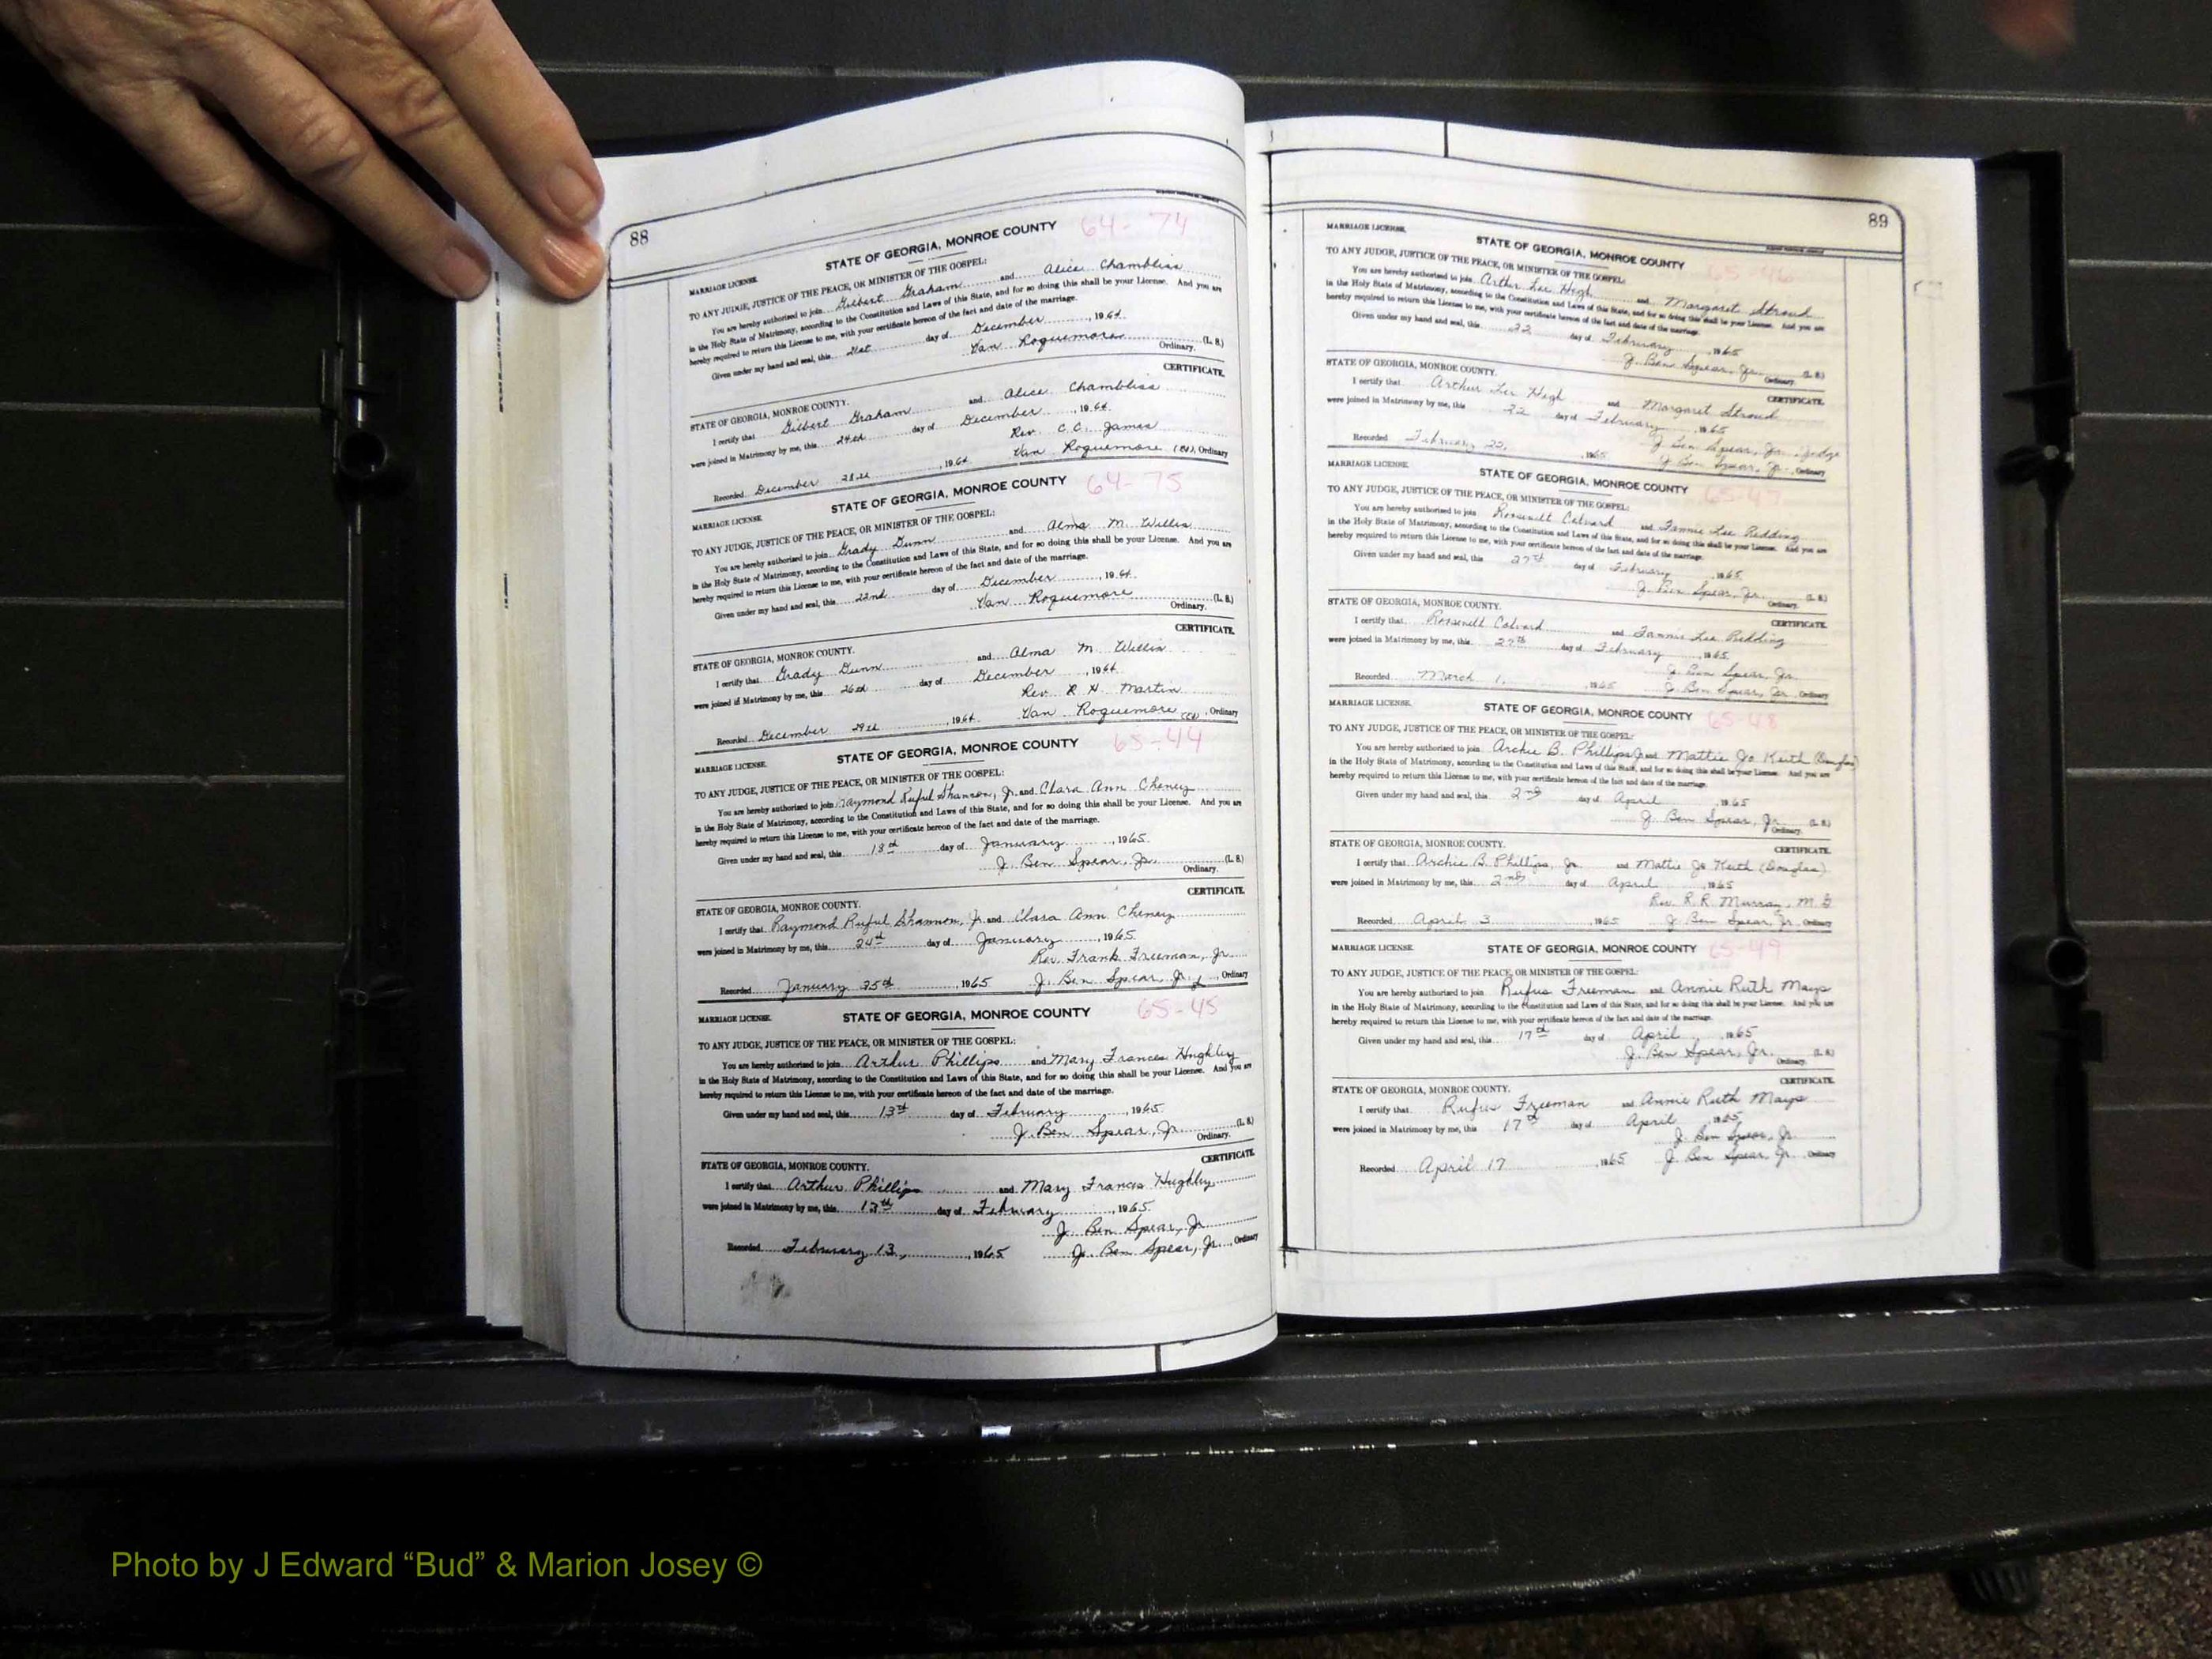 88
64-74
STATE OF GEORGIA, MONROE COUNTY
MARRIAGE LICENSE.
TO ANY JUDGE, JUSTICE OF THE PEACE, OR MINISTER OF THE GOSPEL:
You are hereby authorized to join Gilbert Graham and Alice Chambliss
in the Holy State of Matrimony, according to the Constitution and Laws of this State, and for so doing this shall be your License. And you are
hereby required to return this License to me, with your certificate hereon of the fact and date of the marriage.
Given under my hand and seal, this 21st day of December, 1964.
Van Roquemore (L. S.)
Ordinary.
CERTIFICATE.
STATE OF GEORGIA, MONROE COUNTY.
I certify that Gilbert Graham and Alice Chambliss
were joined in Matrimony by me, this 24th day of December, 1964.
Rev. C.C. James
Recorded December 28th, 1964 Van Roquemore, Ordinary
64-75
STATE OF GEORGIA, MONROE COUNTY
MARRIAGE LICENSE.
TO ANY JUDGE, JUSTICE OF THE PEACE, OR MINISTER OF THE GOSPEL:
You are hereby authorized to join Grady Dunn and Alma M. Willis
in the Holy State of Matrimony, according to the Constitution and Laws of this State, and for so doing this shall be your License. And you are
hereby required to return this License to me, with your certificate hereon of the fact and date of the marriage.
Given under my hand and seal, this 22nd day of December, 1964.
Van Roquemore (L. S.)
Ordinary.
CERTIFICATE.
STATE OF GEORGIA, MONROE COUNTY.
I certify that Grady Dunn and Alma M. Willis
were joined if Matrimony by me, this 26th day of December, 1964.
Rev. R. H. Martin
Recorded December 29th, 1964. Van Roquemore, Ordinary
65-44
STATE OF GEORGIA, MONROE COUNTY
MARRIAGE LICENSE.
TO ANY JUDGE, JUSTICE OF THE PEACE, OR MINISTER OF THE GOSPEL:
You are hereby authorized to join Raymond Ruful Shannon, Jr. and Clara Ann Cheney
in the Holy State of Matrimony, according to the Constitution and Laws of this State, and for so doing this shall be your License. And you are
hereby required to return this License to me, with your certificate hereon of the fact and date of the marriage.
Given under my hand and seal, this 13th day of January, 1965.
J. Ben Spear, Jr. (L. S.)
Ordinary.
CERTIFICATE.
STATE OF GEORGIA, MONROE COUNTY.
I certify that Raymond Ruful Shannon, Jr. and Clara Ann Cheney
were joined in Matrimony by me, this 24th day of January, 1965.
Rev. Frank Freeman, Jr.
Recorded January 25th, 1965 J. Ben Spear, Jr., Ordinary
65-45
MARRIAGE LICENSE. STATE OF GEORGIA, MONROE COUNTY
TO ANY JUDGE, JUSTICE OF THE PEACE, OR MINISTER OF THE GOSPEL:
You are hereby authorized to join Arthur Phillips and Mary Frances Hughley
in the Holy State of Matrimony, according to the Constitution and Laws of this State, and for so doing this shall be your License. And you are
hereby required to return this License to me, with your certificate hereon of the fact and date of the marriage.
Given under my hand and seal, this 13th day of February, 1965.
J. Ben Spear, Jr. (L. S.)
Ordinary.
CERTIFICATE.
STATE OF GEORGIA, MONROE COUNTY.
I certify that Arthur Phillips and Mary Frances Hughley
were joined in Matrimony by me, this 13th day of February, 1965.
J. Ben Spear, Jr.
Recorded February 13, 1965 J. Ben Spear, Jr., Ordinary
89
MARRIAGE LICENSE.
STATE OF GEORGIA, MONROE COUNTY
65-46
TO ANY JUDGE, JUSTICE OF THE PEACE, OR MINISTER OF THE GOSPEL:
You are hereby authorized to join Arthur Lee High and Margaret Stroud
in the Holy State of Matrimony, according to the Constitution and Laws of this State, and for so doing this shall be your License. And you are
hereby required to return this License to me, with your certificate hereon of the fact and date of the marriage.
Given under my hand and seal, this 22 day of February, 1965
J. Ben Spear, Jr. (L. S.)
Ordinary.
STATE OF GEORGIA, MONROE COUNTY.
CERTIFICATE.
I certify that Arthur Lee High and Margaret Stroud
were joined in Matrimony by me, this 22 day of February, 1965
J. Ben Spear, Jr., Judge
Recorded February 22, 1965 J. Ben Spear, Jr., Ordinary
MARRIAGE LICENSE.
STATE OF GEORGIA, MONROE COUNTY 65-47
TO ANY JUDGE, JUSTICE OF THE PEACE, OR MINISTER OF THE GOSPEL:
You are hereby authorized to join Roosevelt Calvard and Fannie Lee Redding
in the Holy State of Matrimony, according to the Constitution and Laws of this State, and for so doing this shall be your License. And you are
hereby required to return this License to me, with your certificate hereon of the fact and date of the marriage.
Given under my hand and seal, this 27th day of February, 1965
J. Ben Spear, Jr. (L. S.)
Ordinary.
STATE OF GEORGIA, MONROE COUNTY.
CERTIFICATE.
I certify that Roosevelt Calvard and Fannie Lee Redding
were joined in Matrimony by me, this 27th day of February, 1965
J. Ben Spear, Jr.
Recorded March 1, 1965 J. Ben Spear, Jr., Ordinary
MARRIAGE LICENSE.
STATE OF GEORGIA, MONROE COUNTY 65-48
TO ANY JUDGE, JUSTICE OF THE PEACE, OR MINISTER OF THE GOSPEL:
You are hereby authorized to join Archie B. Phillips Jr and Mattie Jo Keith (Douglas)
in the Holy State of Matrimony, according to the Constitution and Laws of this State, and for so doing this shall be your License. And you are
hereby required to return this License to me, with your certificate hereon of the fact and date of the marriage.
Given under my hand and seal, this 2nd day of April, 1965
J. Ben Spear, Jr. (L. S.)
Ordinary.
STATE OF GEORGIA, MONROE COUNTY.
CERTIFICATE.
I certify that Archie B. Phillips, Jr. and Mattie Jo Keith (Douglas)
were joined in Matrimony by me, this 2nd day of April, 1965
Rev. R.R. Murray, M.G
Recorded April 3, 1965 J. Ben Spear, Jr., Ordinary
MARRIAGE LICENSE. STATE OF GEORGIA, MONROE COUNTY 65-49
TO ANY JUDGE, JUSTICE OF THE PEACE, OR MINISTER OF THE GOSPEL:
You are hereby authorized to join Rufus Freeman and Annie Ruth Mays
in the Holy State of Matrimony, according to the Constitution and Laws of this State, and for so doing this shall be your License. And you are
hereby required to return this License to me, with your certificate hereon of the fact and date of the marriage.
Given under my hand and seal, this 17th day of April, 1965
J. Ben Spear, Jr. (L. S.)
Ordinary.
CERTIFICATE.
STATE OF GEORGIA, MONROE COUNTY.
I certify that Rufus Freeman and Annie Ruth Mays
were joined in Matrimony by me, this 17th day of April, 1965
J. Ben Spear, Jr.
Recorded April 17, 1965 J. Ben Spear, Jr., Ordinary
Photo by J Edward “Bud” & Marion Josey ©